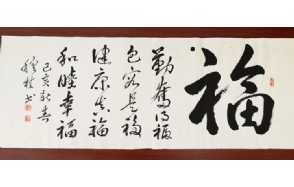 福
勤奋得福
包容是福
健康是福
和睦幸福
己亥新春
书